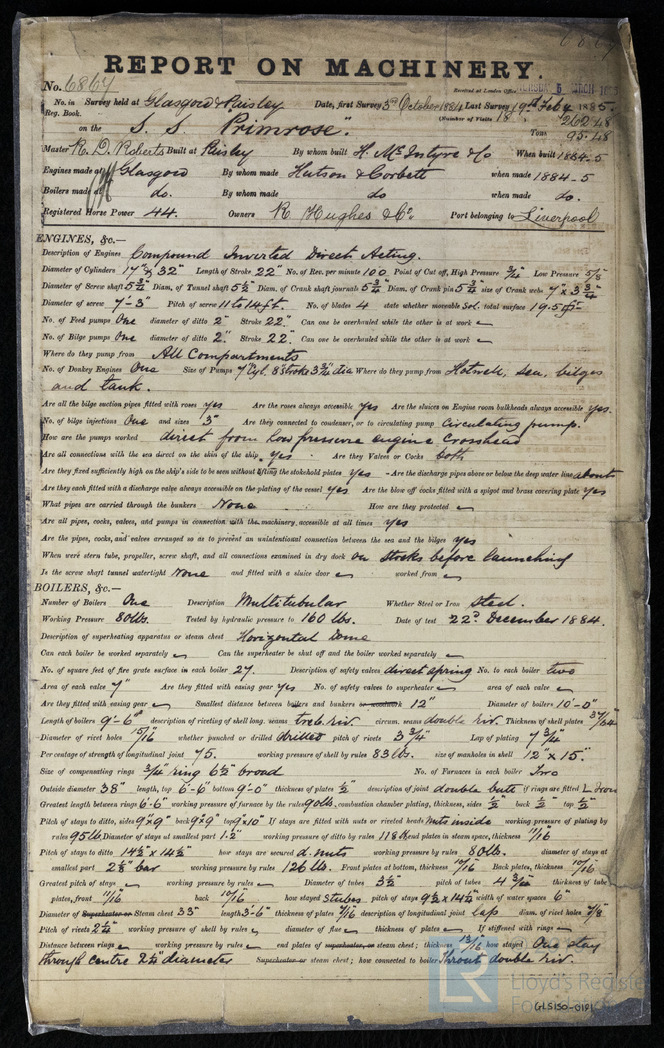 6867
REPORT ON MACHINERY.
No. 6867 Received at London Office THURSDAY 5 MARCH
No. in Survey held at Glasgow & Paisley Date, first Survey 3rd October 1884 Last Survey 19th Feby 1885
Reg. Book. (Number of Visits 18) 262.48
on the S. S. "Primrose". Tons 95.48
Master R. D. Roberts Built at Paisley By whom built H. McIntyre & Co When built 1884-5
Engines made at Glasgow By whom made Hutson & Corbett when made 1884-5
Boilers made at do. By whom made do when made do.
Registered Horse Power 44. Owners R. Hughes & Co. Port belonging to Liverpool
ENGINES, &c.—
Description of Engines Compound Inverted Direct Acting.
Diameter of Cylinders 17" & 32" Length of Stroke 22" No. of Rev. per minute 100 Point of Cut off, High Pressure 3/4 Low Pressure 5/8
Diameter of Screw shaft 5 3/4 Diam. of Tunnel shaft 5 1/2 Diam. of Crank shaft journals 5 3/4 Diam. of Crank pin 5 3/4 size of Crank webs 7" x 3 3/4
Diameter of screw 7'-3" Pitch of screw 11 to 14 ft. No. of blades 4 state whether moveable Sol. total surface 19.5 ft
No. of Feed pumps One diameter of ditto 2" Stroke 22" Can one be overhauled while the other is at work
No. of Bilge pumps One diameter of ditto 2" Stroke 22" Can one be overhauled while the other is at work
Where do they pump from All Compartments
No. of Donkey Engines One Size of Pumps 7" Cyl. 8" stroke 3 3/4 dia Where do they pump from Hotwell, sea, bilges
and tank.
Are all the bilge suction pipes fitted with roses yes Are the roses always accessible yes Are the sluices on Engine room bulkheads always accessible yes.
No. of bilge injections One and sizes 3" Are they connected to condenser, or to circulating pump Circulating pump.
How are the pumps worked direct from Low pressure engine Crosshead
Are all connections with the sea direct on the skin of the ship yes Are they Valves or Cocks both
Are they fixed sufficiently high on the ship's side to be seen without lifting the stokehold plates yes Are the discharge pipes above or below the deep water line above
Are they each fitted with a discharge valve always accessible on the plating of the vessel yes Are the blow off cocks fitted with a spigot and brass covering plate yes
What pipes are carried through the bunkers None How are they protected
Are all pipes, cocks, valves, and pumps in connection with the machinery, accessible at all times yes
Are the pipes, cocks, and valves arranged so as to prevent an unintentional connection between the sea and the bilges yes
When were stern tube, propeller, screw shaft, and all connections examined in dry dock on stocks before launching
Is the screw shaft tunnel watertight None and fitted with a sluice door worked from
BOILERS, &c.—
Number of Boilers One Description Multitubular Whether Steel or Iron Steel.
Working Pressure 80 lbs. Tested by hydraulic pressure to 160 lbs. Date of test 22d December 1884.
Description of superheating apparatus or steam chest Horizontal Dome
Can each boiler be worked separately Can the superheater be shut off and the boiler worked separately
No. of square feet of fire grate surface in each boiler 27. Description of safety valves direct spring No. to each boiler two
Area of each valve 7" Are they fitted with easing gear yes No. of safety valves to superheater area of each valve
Are they fitted with easing gear Smallest distance between boilers and bunkers or woodwork 12" Diameter of boilers 10'-0"
Length of boilers 9'-6" description of riveting of shell long. seams treb. riv. circum. seams double riv. Thickness of shell plates
Diameter of rivet holes 15/16 whether punched or drilled drilled pitch of rivets 3 3/4 Lap of plating 7 3/4
Per centage of strength of longitudinal joint 75. working pressure of shell by rules 83 lbs. size of manholes in shell 12" x 15"
Size of compensating rings 3/4 ring 6 1/2 broad No. of Furnaces in each boiler Two
Outside diameter 38" length, top 6'-6" bottom 9'-0" thickness of plates 1/2" description of joint double butt if rings are fitted L Iron
Greatest length between rings 6'-6" working pressure of furnace by the rules 90 lbs. combustion chamber plating, thickness, sides 1/2" back 1/2" top 1/2"
Pitch of stays to ditto, sides 9"x9" back 9"x9" top 9"x10" If stays are fitted with nuts or riveted heads Nuts inside working pressure of plating by
rules 95 lb Diameter of stays at smallest part 1.2" working pressure of ditto by rules 118 lb end plates in steam space, thickness 11/16
Pitch of stays to ditto 14 1/2" x 14 1/2" how stays are secured d. nuts working pressure by rules 80 lb. diameter of stays at
smallest part 2 1/8 bar working pressure by rules 126 lb. Front plates at bottom, thickness 10/16 Back plates, thickness 10/16
Greatest pitch of stays working pressure by rules Diameter of tubes 3 1/2 pitch of tubes 4 3/4 thickness of tube
plates, front 11/16 back 10/16 how stayed Stubes pitch of stays 9 1/2 x 14 1/2 width of water spaces 6"
Diameter of Superheater or Steam chest 33" length 3'-6" thickness of plates 7/16 description of longitudinal joint lap diam. of rivet holes 7/8
Pitch of rivets 2 1/4 working pressure of shell by rules diameter of flue thickness of plates If stiffened with rings
Distance between rings working pressure by rules end plates of superheater, or steam chest; thickness 13/16 how stayed One stay
through centre 2 1/4" diameter Superheater or steam chest; how connected to boiler Throat double riv.
Lloyd's Register
Foundation
GLS150-0191